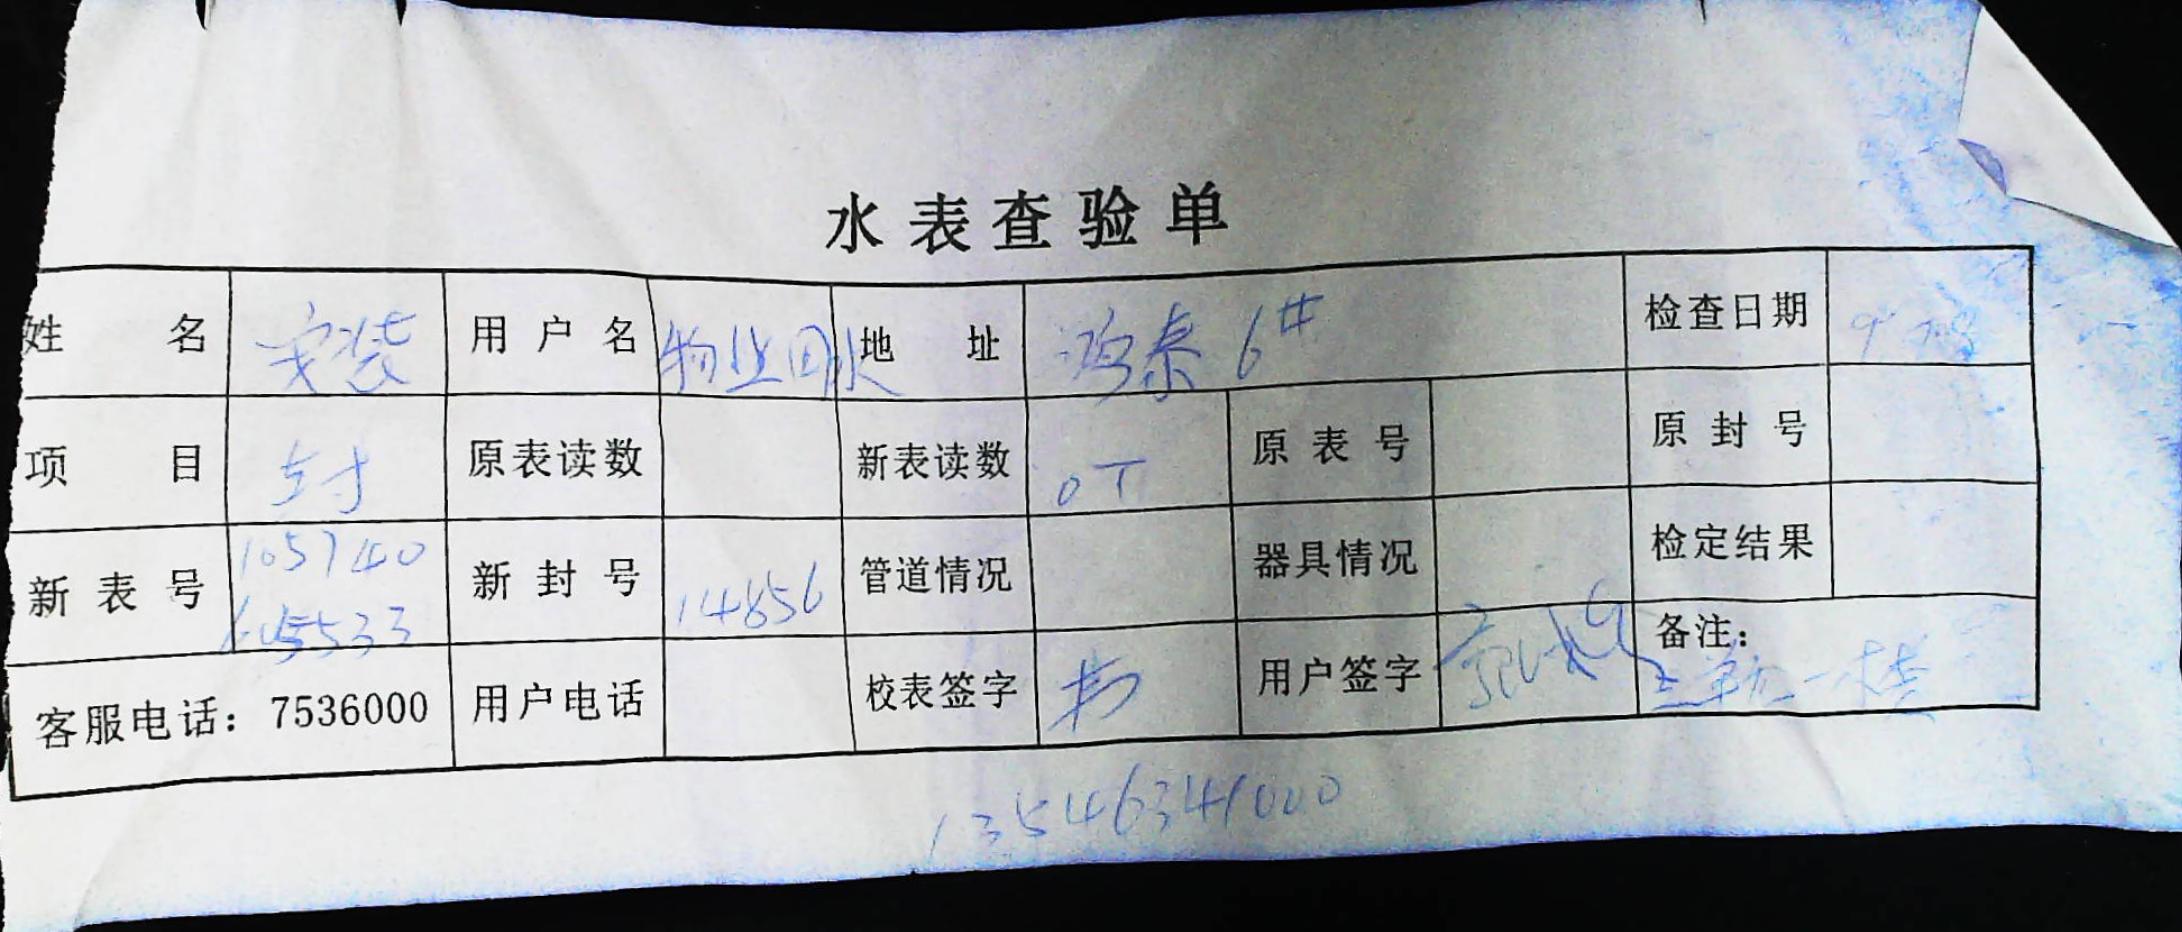 水表查验单
姓名 安装 用户名 物业回水 地址 鸿泰6# 检查日期
项目 封 原表读数 新表读数 0T 原表号 原封号
新表号 105740 新封号 14856 管道情况 器具情况 检定结果
客服电话：7536000 用户电话 校表签字 用户签字 备注：
三单元一楼
13546341000